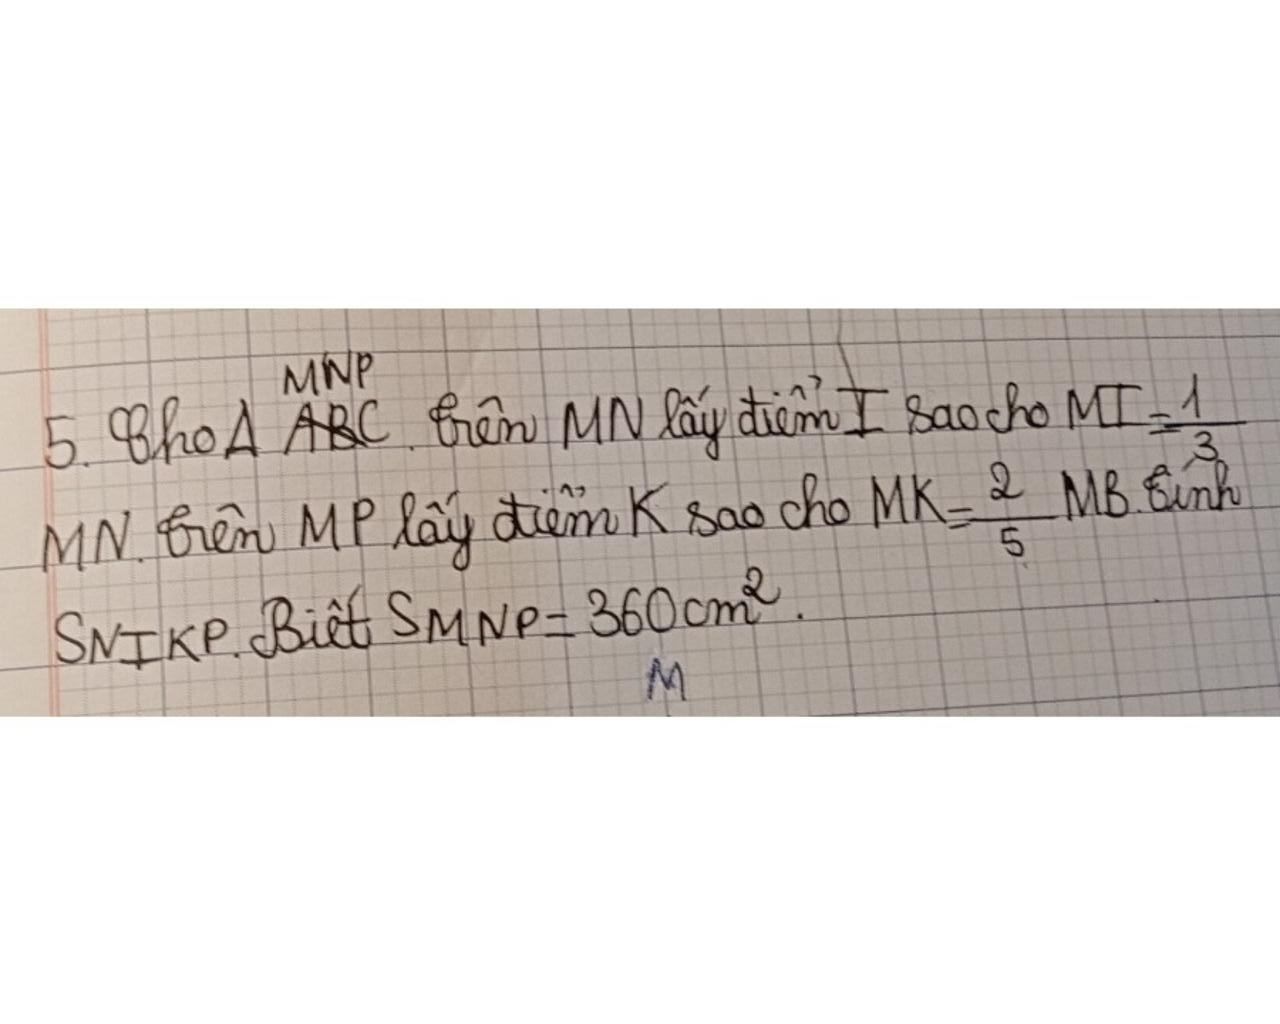 MNP
5. Cho Δ ABC. trên MN lấy điểm I sao cho MI = 1/3
MN. trên MP lấy điểm K sao cho MK = 2/5 MB. tính
SNIKP. Biết SMNP = 360cm².
M